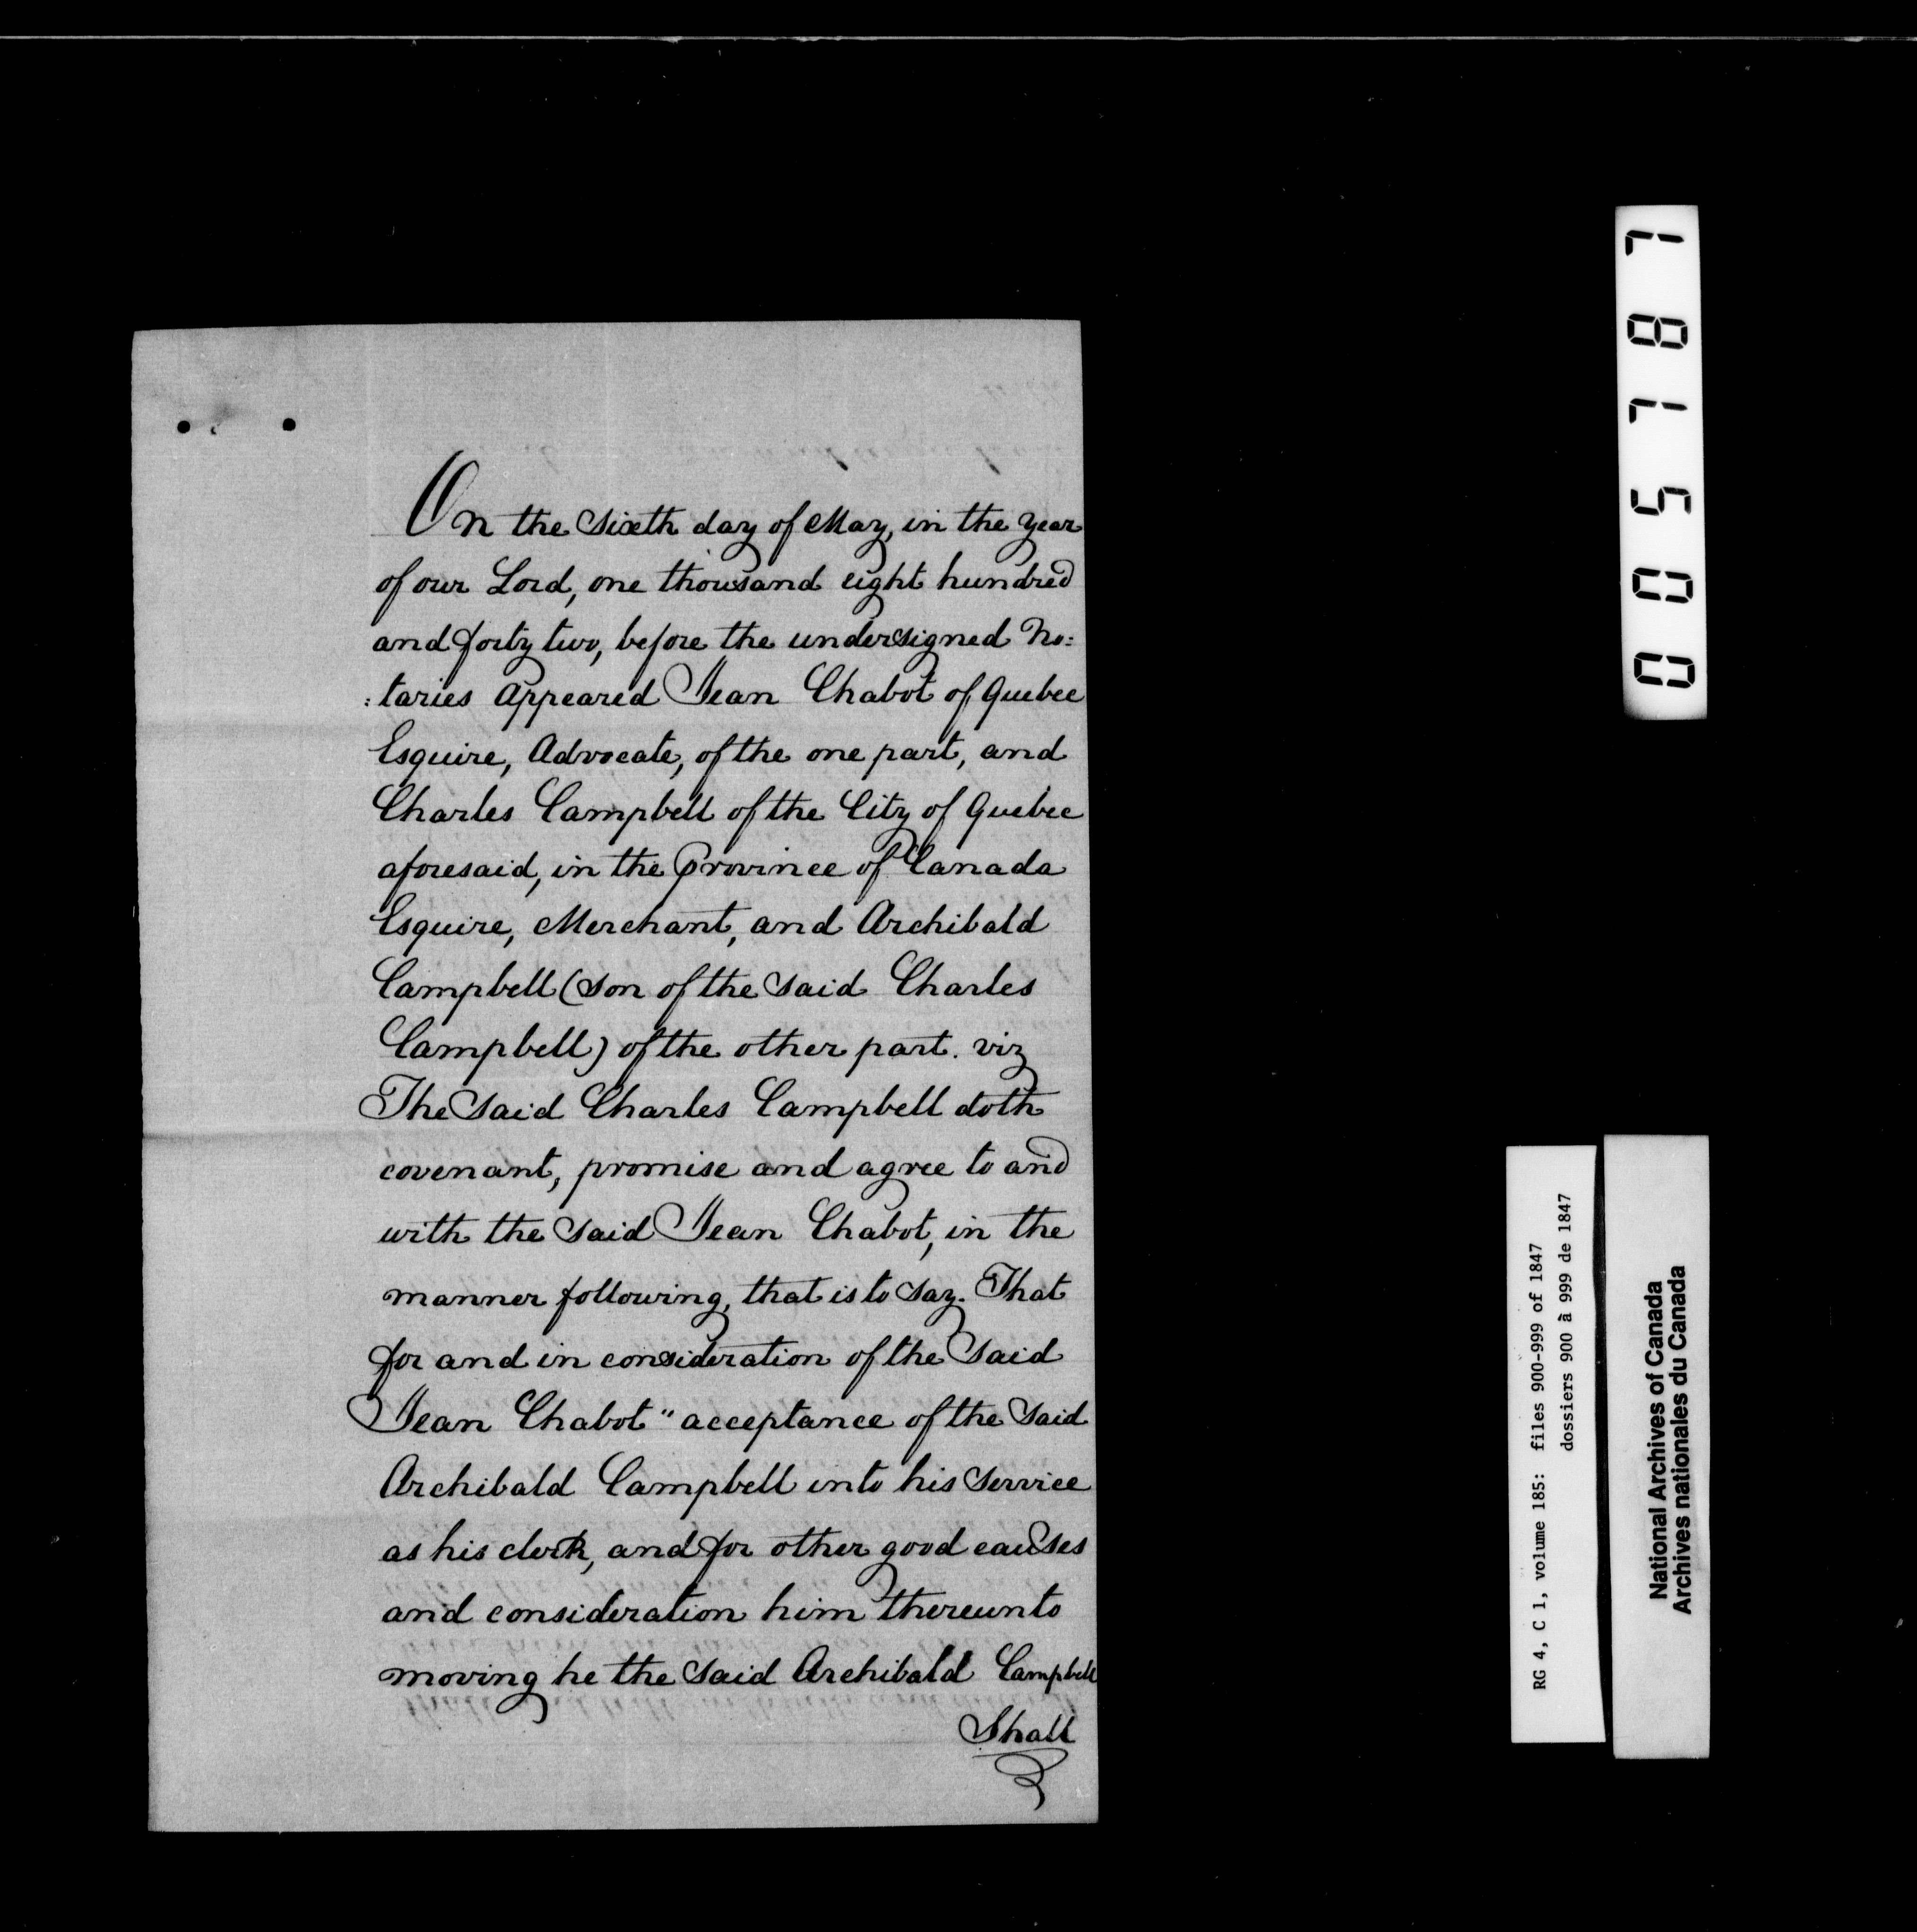 On the Sixth day of May, in the year
of our Lord, one thousand eight hundred
and forty two, before the undersigned No:
:taries appeared Jean Chabot of Quebec
Esquire, Advocate, of the one part, and
Charles Campbell of the City of Quebec
aforesaid, in the Province of Canada
Esquire, Merchant, and Archibald
Campbell (son of the said Charles
Campbell) of the other part. viz
The Said Charles Campbell doth
covenant, promise and agree to and
with the Said Jean Chabot, in the
manner following, that is to Say. That
for and in consideration of the Said
Jean Chabot" acceptance of the Said
Archibald Campbell into his Service
as his clerk, and for other good causes
and consideration him thereunto
moving he the Said Archibald Campbell
Shall
005187
RG 4, C 1, volume 185: files 900-999 of 1847
dossiers 900 à 999 de 1847
National Archives of Canada
Archives nationales du Canada